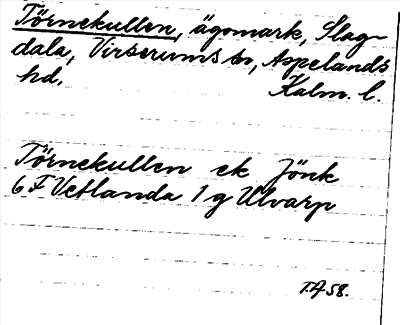 Törnekullen, ägomark, Slag-
dala, Virserums sn, Aspelands
hd. Kalm. l.
Törnekullen ek Jönk
6 F Vetlanda 1 g Ulvarp
T.A. 58.